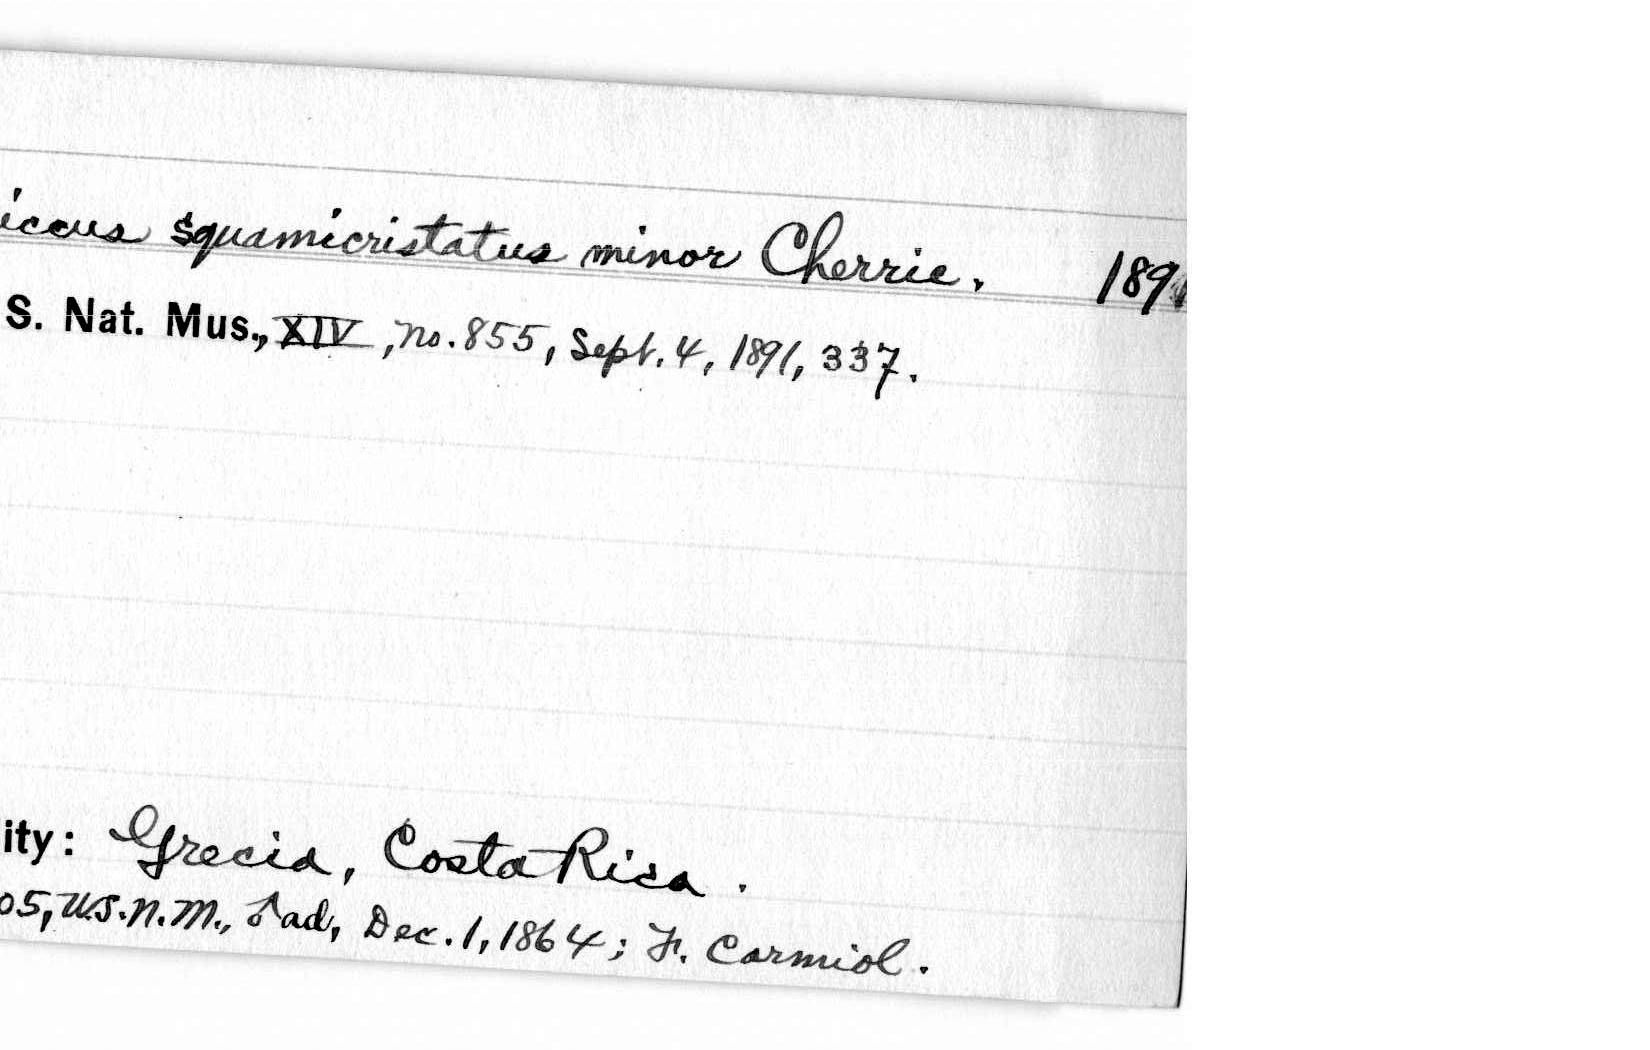 iccus squamicristatus minor Cherrie. 1891
S. Nat. Mus., XIV, no. 855, Sept. 4, 1891, 337.
ity: Grecia, Costa Rica.
05, U.S.N.M., ♂ ad, Dec. 1, 1864; F. Carmiol.